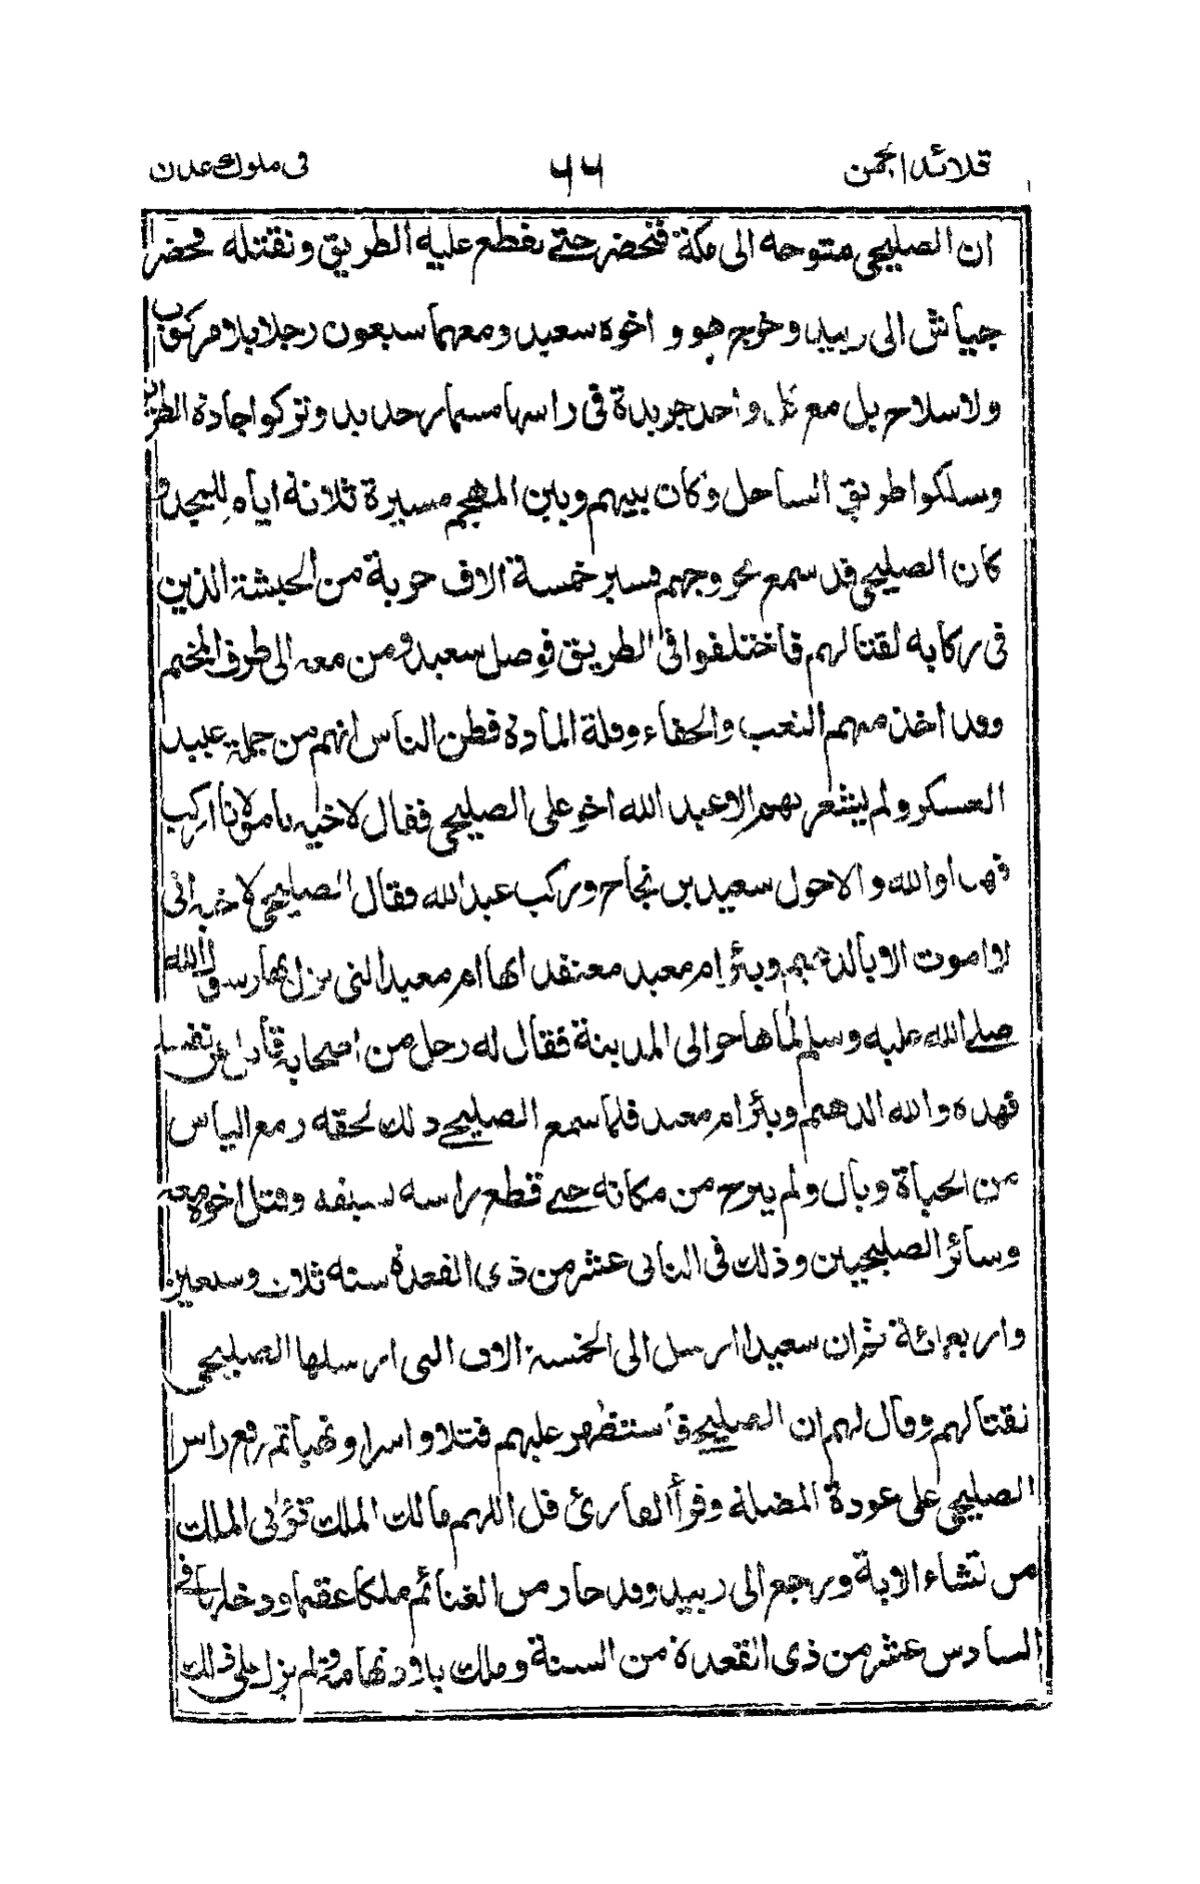 قلائد الجمن ٦٦ في ملوك عدن
ان الصليحي متوجه الى مكة فتحضر حتى نقطع عليه الطريق ونقتله فحضر
جياش الى زبيد وخرج هو و اخوه سعيد ومعهما سبعون رجلا بلا مركوب
ولا سلاح بل مع كل واحد جريدة في راسها مسمار حديد وتركوا جادة الطريق
وسلكوا طريق الساحل وكان بينهم وبين المهجم مسيرة ثلاثة ايام للمجد و
كان الصليحي قد سمع بخروجهم فسير خمسة الاف حربة من الحبشة الذين
في ركابه لقتالهم فاختلفوا في الطريق فوصل سعيد ومن معه الى طرف المخيم
وقد اخذ منهم التعب والحفاء وقلة المادة فظن الناس انهم من جملة عبيد
العسكر ولم يشعر بهم الا عبد الله اخو علي الصليحي فقال لاخيه يا مولانا اركب
فهذا والله والاحول سعيد بن نجاح وركب عبد الله فقال الصليحي لاخيه اني
لا اموت الا بالدهيم وبئر ام معبد معتقد انها ام معبد التي نزل بها رسول الله
صلى الله عليه وسلم لما هاجر الى المدينة فقال له رجل من اصحابه قاتل عن نفسك
فهذه والله الدهيم وبئر ام معبد فلما سمع الصليحي ذلك لحقه زمع الياس
من الحياة وبال ولم يبرح من مكانه حتى قطع راسه بسيفه وقتل اخوه معه
وسائر الصليحيين وذلك في الثاني عشر من ذي القعدة سنة ثلاث وسبعين
واربعمائة ثم ان سعيدا ارسل الى الخمسة الاف التي ارسلها الصليحي
لقتالهم وقال لهم ان الصليحي فاستظهر عليهم قتلا واسرا ونهبا ثم رفع راس
الصليحي على عودة المضلة وقرأ القارئ قل اللهم مالك الملك تؤتي الملك
من تشاء الاية ورجع الى زبيد وقد حاز من الغنائم ملكا عقيما ودخلها في
السادس عشر من ذي القعدة من السنة وملك بلاد تهامة ولم يزل على ذلك